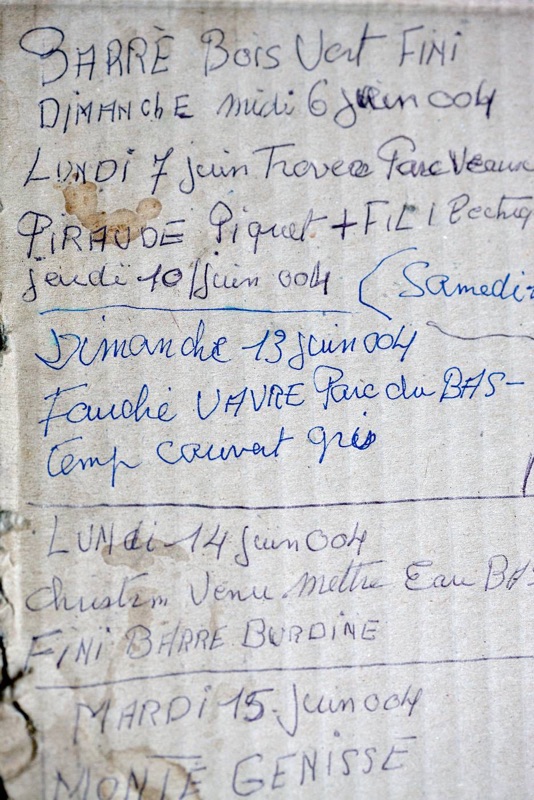 BARRÈ Bois Vert FINI
DIMANChE midi 6 juin 004
LUNDI 7 juin Parc Veaux
PIRAUDE Piquet + FIL
jeudi 10 juin 004 (Samedi
Dimanche 13 juin 004
Fauché VAVRE Parc du BAS-
Temp couvert gris
LUNdi 14 juin 004
Christian Venu mettre Eau BAS
FINI BARRE BURDINE
MARDI 15 Juin 004
MONTÉ GENISSE